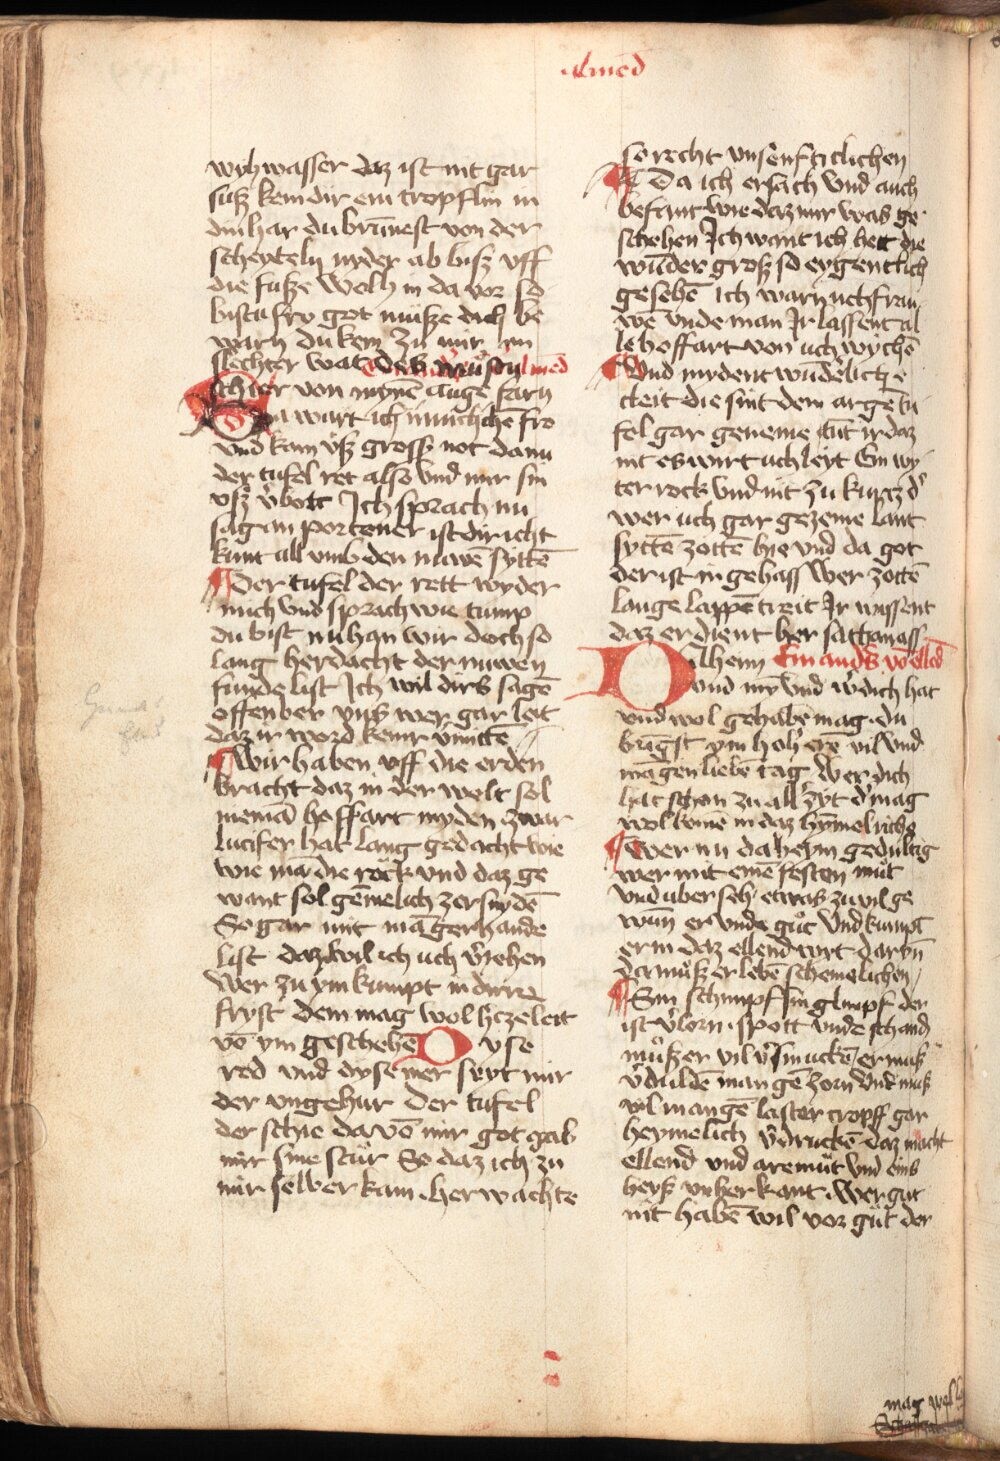 almed
wyhwasser daz ist nit gar
suß kem dir ein tropflin in
din har du brūnest von der
scheyteln nyder ab biß vff
die fusze Welh in da vor so
bistu fro got musze dich be
warn du kem zu mir im
slechter wat des
schier von mynē augē farn
Da wart ich inniclichē fro
vnd kam vß gross not dann
der tufel ret also vnd mir sin
vsz v̓bott Ich sprach nu
sag an portener ist dir icht
kunt all vmb den nuwē syttē
Der tufel der rett wyder
mich vnd sprach wie tump
du bist nu han wir doch so
lang herdacht der nuwen
funde list Ich wil dirs sagē
offenber vns wer gar leit
daz ir word kemr v̓mittē
Wir haben vff die erden
bracht daz in der welt sol
niemā hoffart myden zwar
lucifer hat lang gedacht wie
wie mā die röck vnd daz ge
want sol gēmelich zersnydē
So gar mit māgerhande
list daz wil ich uch v̓iehen
Wer zu ym kumpt in dirre
fryst dem mag wol hczeleit
vō ym geschehē Dyse
red vnd dyse mer seyt mir
der vngehur Der tufel
der schie da vō mir got gab
mir sine stúr So daz ich zu
mir selber kam. her wachte
so recht vnsenfticlichen
Da ich ersach vnd auch
befant wie daz mir was ge
schehen Ich want ich hett die
wūder groß so eygentlich
gesehē Ich warn uch frau
wē vnde man Ir lassent al
le hoffart von uch wychē
Vnd mydent wūd̓lich e
cleit die sint dem argē tu
fel gar geneme tūt ir daz
nit es wirt uch leyt Ein wy
ter rock vnd nit zu kurtz d̓
wer uch gar gezeme lant
syttē zottē hie vnd da got
der ist in gehass Wer zottē
lange lappē treit Ir wissent
daz er dient her sathanass
Dlheim Ein and̓s vō ellēd
vnd my vnd w̓ dich hat
vnd wol gehabē mag. du
brīgst ym hoh̓ erē vil vnd
māgen liebē tag Wer dich
hat schon zu all̓ zyt d̓ mag
wol kōme in daz hȳmelrich
Wer nu da heym gedultig
wer mit einē festen mūt
vnd uberseh etwas zu vil ge
wūn er vnde gůt Vnd kumpt
er in daz ellend wrt daryn̄
da můß er lebē schemelichen
Sin schimpf sin glimpf der
ist v̓lorn. spott vnde schand
můß er vil v̓smuckē er muß
v̓duldē mangē zorn Vnd muß
vil mangē laster tropff gar
heymelich v̓druckē daz macht
ellend vnd aremūt vnd eins
hertz vnherkant. Wer gut
nit habē wil vor gůt der